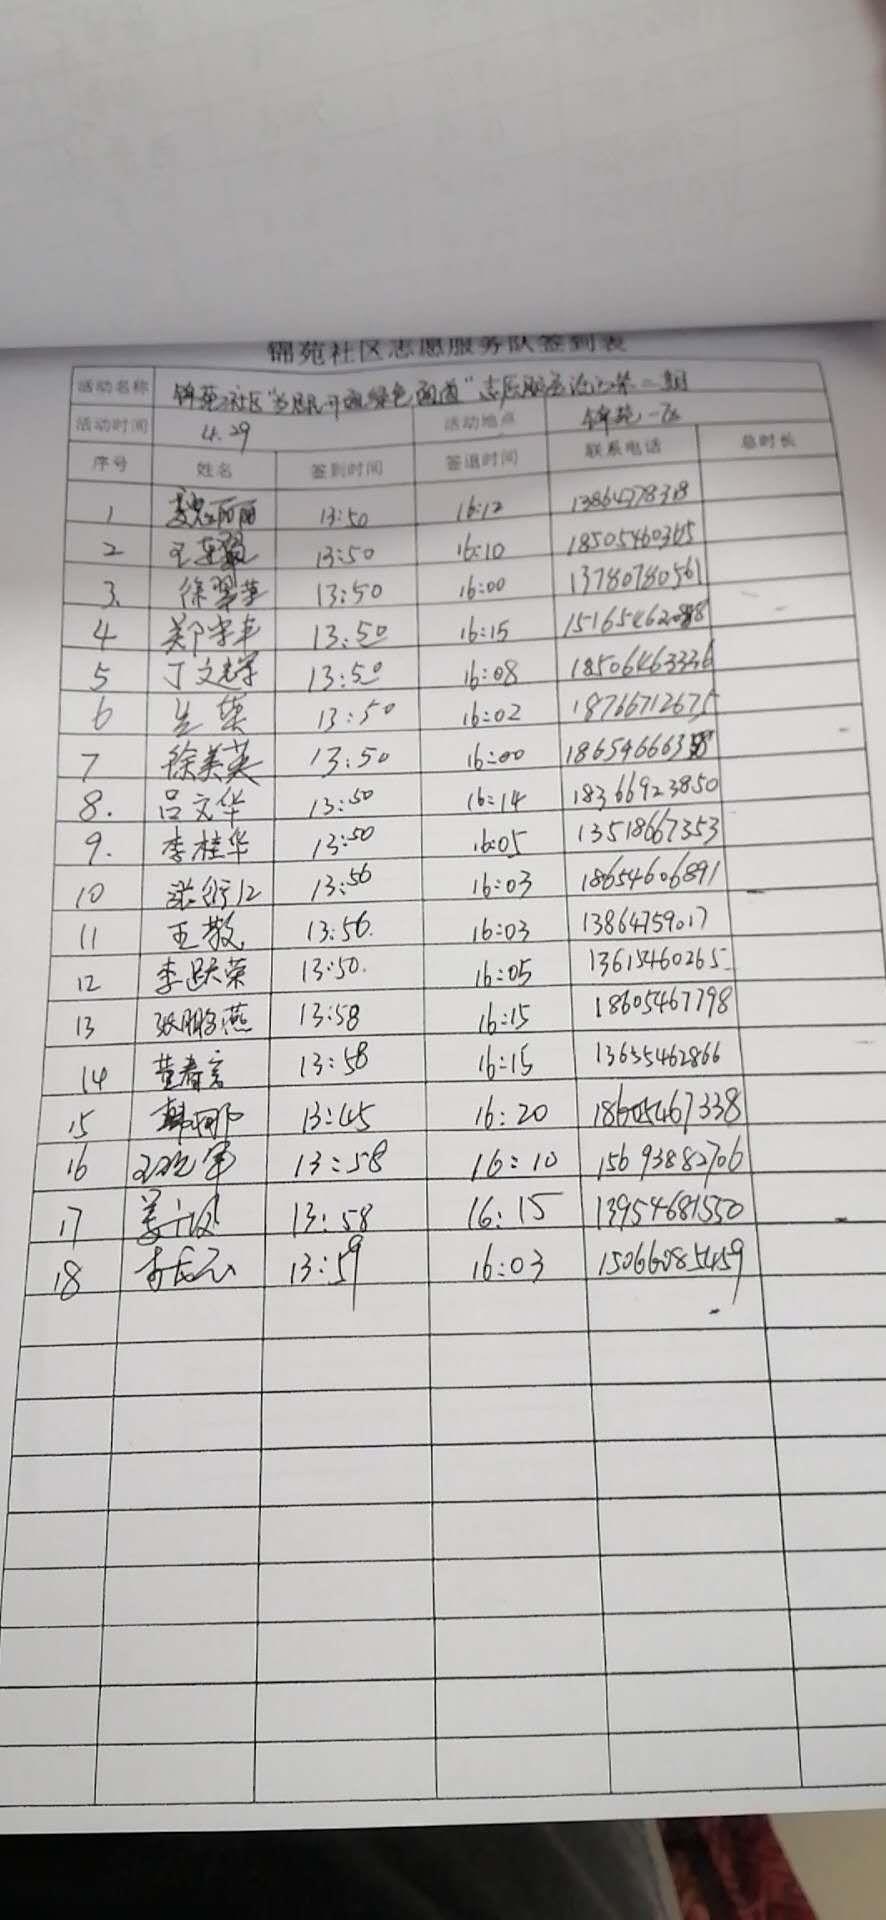 锦苑社区志愿服务队签到表
活动名称 锦苑社区"为居民开通绿色通道"志愿服务活动第二期
活动时间 4.29 活动地点 锦苑一区
序号 姓名 签到时间 签退时间 联系电话 总时长
1 魏丽丽 13:50 16:12 13864778318
2 13:50 16:10 18505460365
3. 徐翠苹 13:50 16:00 13780780561
4 郑学丰 13:50 16:15
5 丁文学 13:50 16:08 18506463336
6 兰荣 13:50 16:02 18766712675
7 徐美英 13:50 16:00
8. 吕文华 13:50 16:14 18366923850
9. 李桂华 13:50 16:05 13518667353
10 13:56 16:03 18654606891
11 王敬 13:56. 16:03 13864759017
12 李跃荣 13:50. 16:05 13615460265
13 张鹏燕 13:58 16:15 18605467798
14 董春芳 13:58 16:15 13655462866
15 韩娜 13:45 16:20 18605467338
16 13:58 16:10 15693882706
17 13:58 16:15 13954681550
18 13:59 16:03 15066085459